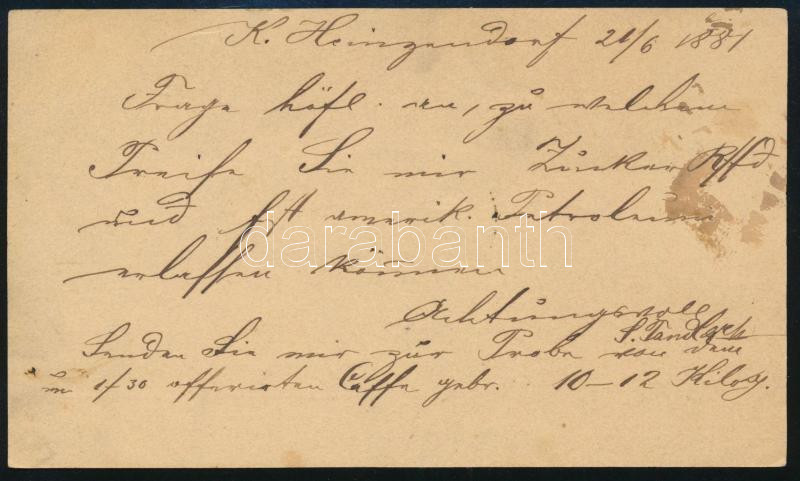 K. Heinzendorf 21/6 1881
Frage höfl. an, zu welchem
Preise Sie mir Zucker Rffd
und fst amerik. Petroleum
erlassen können
Achtungsvoll
Senden Sie mir zur Probe von dem
1/30 offerirten Caffe gebr. 10–12 Kilog.
darabanth